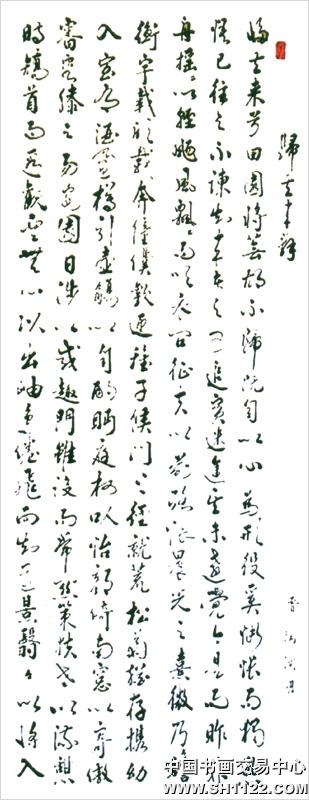 歸去来辞
歸去来兮田園將蕪胡不歸既自以心為形役奚惆悵而獨悲
悟已往之不諫知来者之可追實迷途其未遠覺今是而昨非
舟搖搖以輕颺風飄飄而吹衣問征夫以前路恨晨光之熹微乃瞻
衡宇載欣載奔僮僕歡迎稚子候門三徑就荒松菊猶存攜幼
入室有酒盈樽引壺觴以自酌眄庭柯以怡顏倚南窗以寄傲
審容膝之易安園日涉以成趣門雖設而常關策扶老以流憩
時矯首而遐觀雲無心以出岫鳥倦飛而知還景翳翳以將入
中国书画交易中心
www.SH1122.com